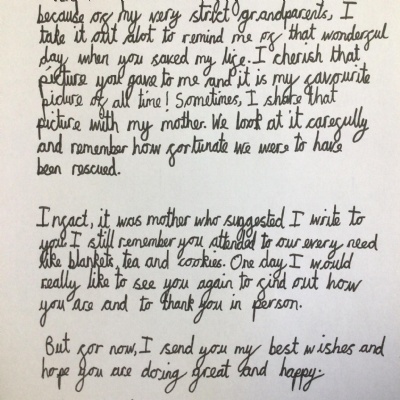 because of my very strict grandparents, I
take it out alot to remind me of that wonderful
day when you saved my life. I cherish that
picture you gave to me and it is my favourite
picture of all time! Sometimes, I share that
picture with my mother. We look at it carefully
and remember how fortunate we were to have
been rescued.
Infact, it was mother who suggested I write to
you. I still remember you attended to our every need
like blankets, tea and cookies. One day, I would
really like to see you again to find out how
you are and to thank you in person.
But for now, I send you my best wishes and
hope you are doing great and happy.